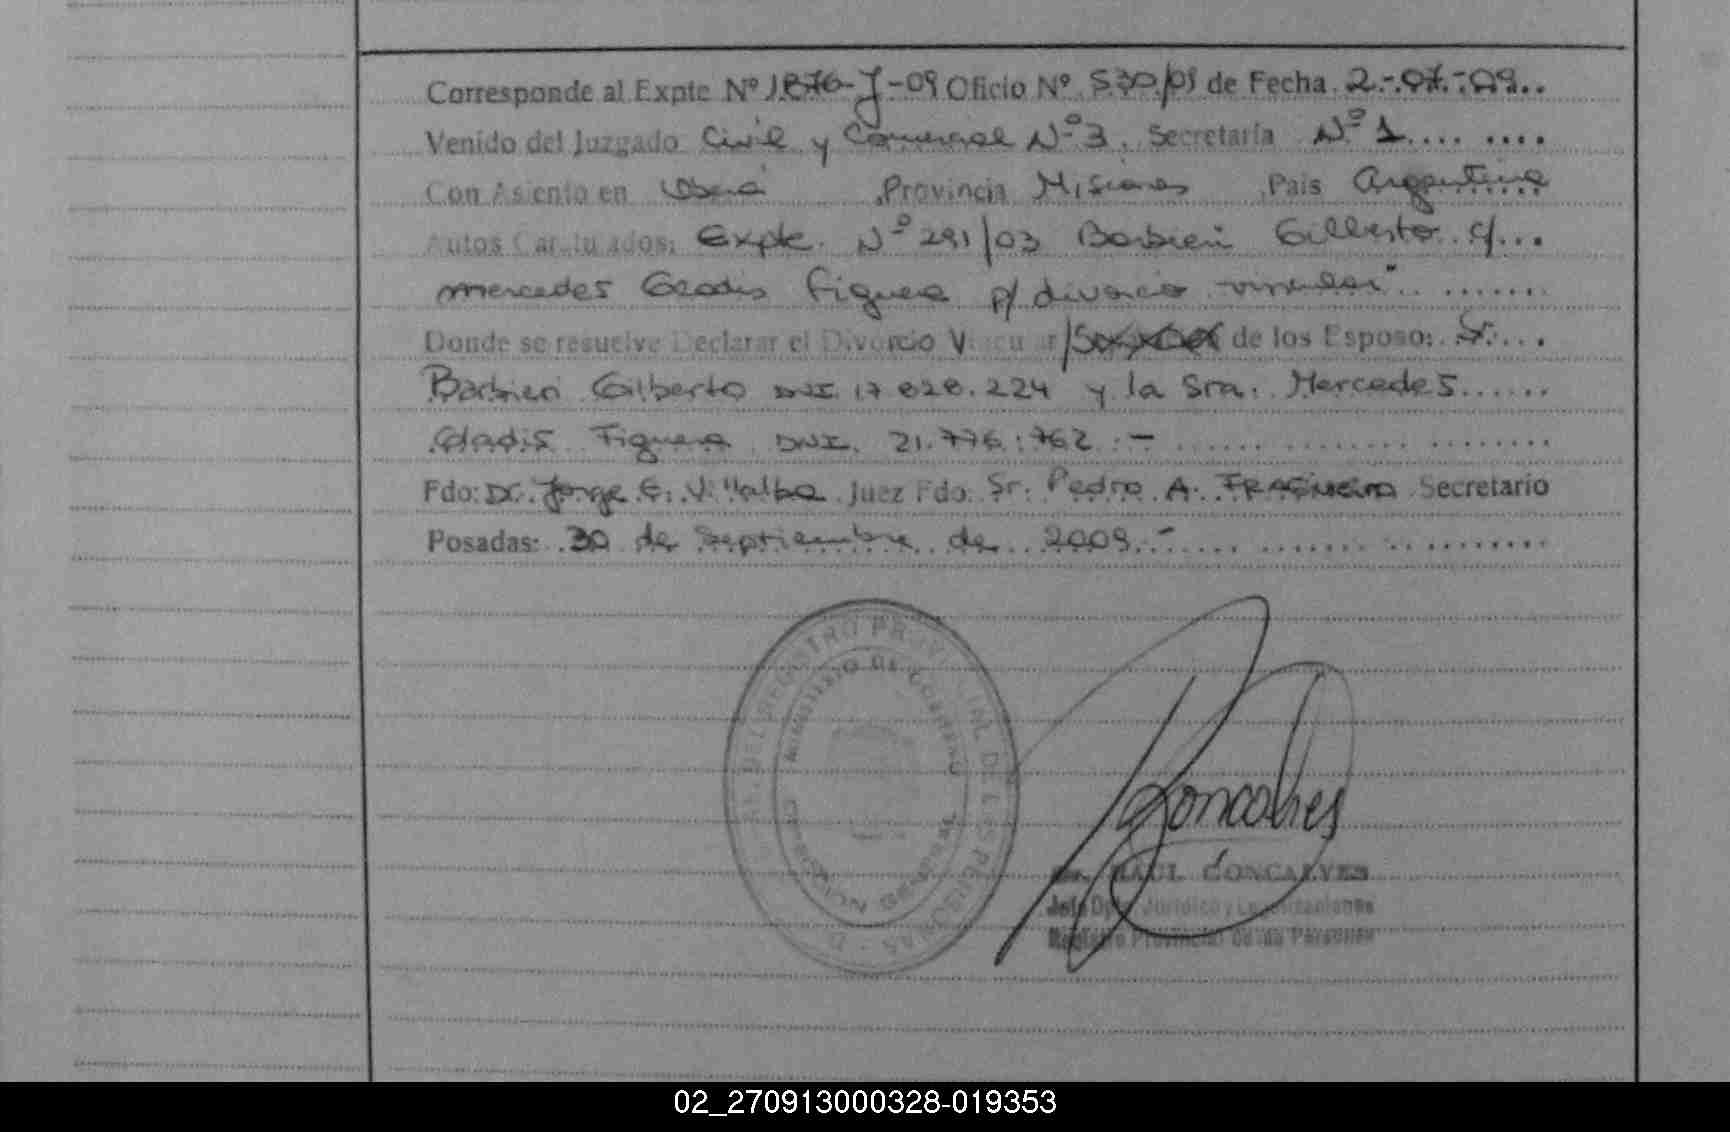 Corresponde al Expte Nº 1876-J-09 Oficio Nº 530/09 de Fecha 2-07-09..
Venido del Juzgado Civil y Comercial Nº 3. Secretaría Nº 1.... ....
Con Asiento en Oberá ,Provincia Misiones ,País Argentina
Autos Caratulados: Expte. Nº 291/03 Barbieri Gilberto c/...
mercedes Gladis Figuera p/ divorcio vincular" .. .......
Donde se resuelve Declarar el Divorcio Vincular/ de los Esposo: Sr....
Barbieri Gilberto DNI. 17.828.224 y la Sra. Mercedes......
Gladis Figuera DNI. 21.776.762.- ...... ........ ........
Fdo: Dr. Jorge E. Villalba Juez Fdo: Sr. Pedro A. FRAGUEIRO Secretario
Posadas: 30 de Septiembre de 2009.- ...... ....... .. ..........
DEL REGISTRO PROVINCIAL DE LAS PERSONAS
MINISTERIO DE GOBIERNO
Goncalves
Dr. RAUL GONCALVES
Jefe Dpto. Jurídico y Legalizaciones
Registro Provincial de las Personas
02_270913000328-019353